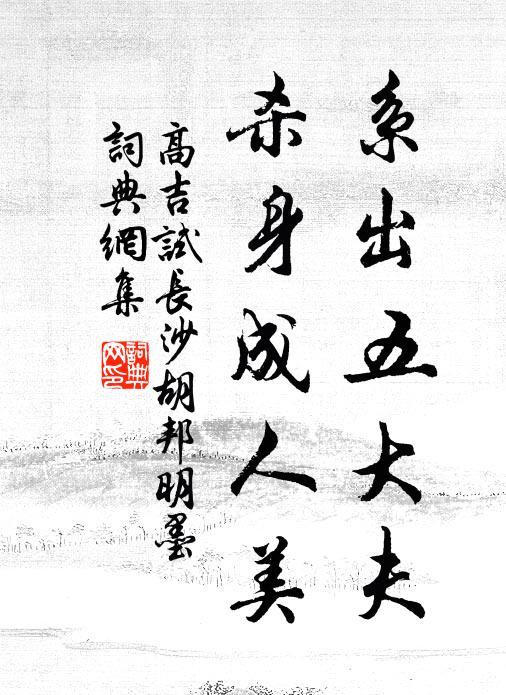 系出五大夫
杀身成人美
高吉試長沙胡邦明墨
詞典網集
詞典
网印